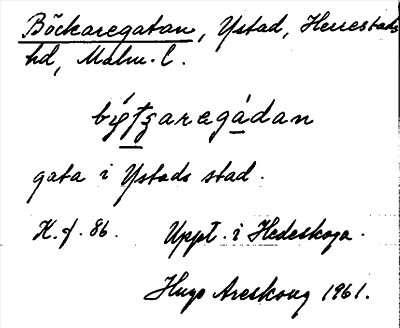 Böckaregatan, Ystad, Herrestads
hd, Malm. l.
gata i Ystads stad.
H. f. 86. Uppt. i Hedeskoga.
Hugo Areskoug 1961.